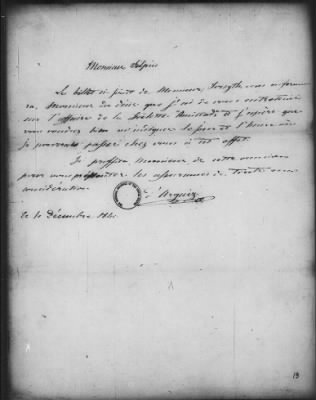 Monsieur Gilpin
Le billet ci joint de Monsieur Forsyth vous informe
ra, Monsieur du désir que j'ai de vous entretenir
sur l'affaire de la Goëlette Amistad, et j'espère que
vous voudrez bien m'indiquer le jour et l'heure où
je pourrais passer chez vous à cet effet.
Je profite, Monsieur de cette occasion
pour vous présenter les assurances de toute ma
considération.
d'Argaiz
Le 10 Décembre 184
13